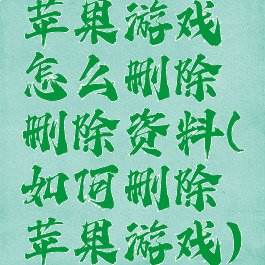 苹果游戏
怎么删除
删除资料(
如何删除
苹果游戏)